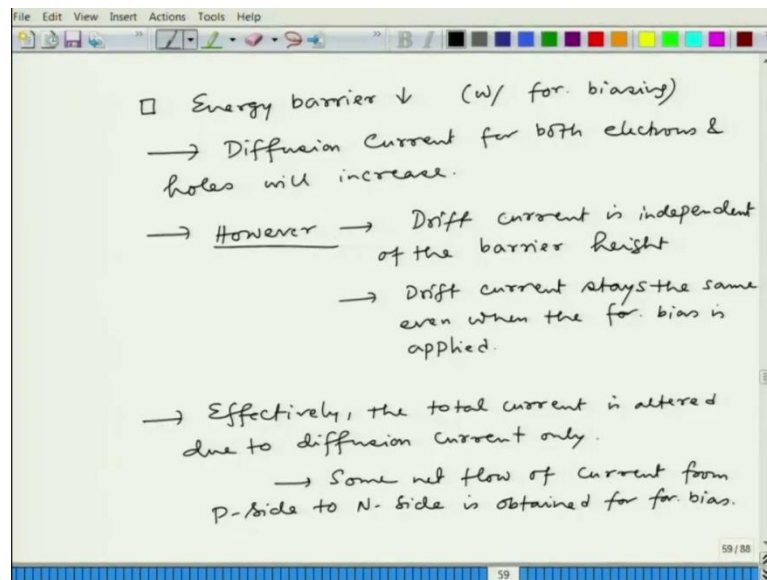 File Edit View Insert Actions Tools Help
B I
□ Energy barrier ↓ (w/ for. biasing)
→ Diffusion Current for both electrons &
holes will increase.
→ However → Drift current is independent
of the barrier height
→ Drift current stays the same
even when the for. bias is
applied.
→ Effectively, the total current is altered
due to diffusion current only.
→ Some net flow of current from
P-side to N-side is obtained for for. bias.
59 / 88
59